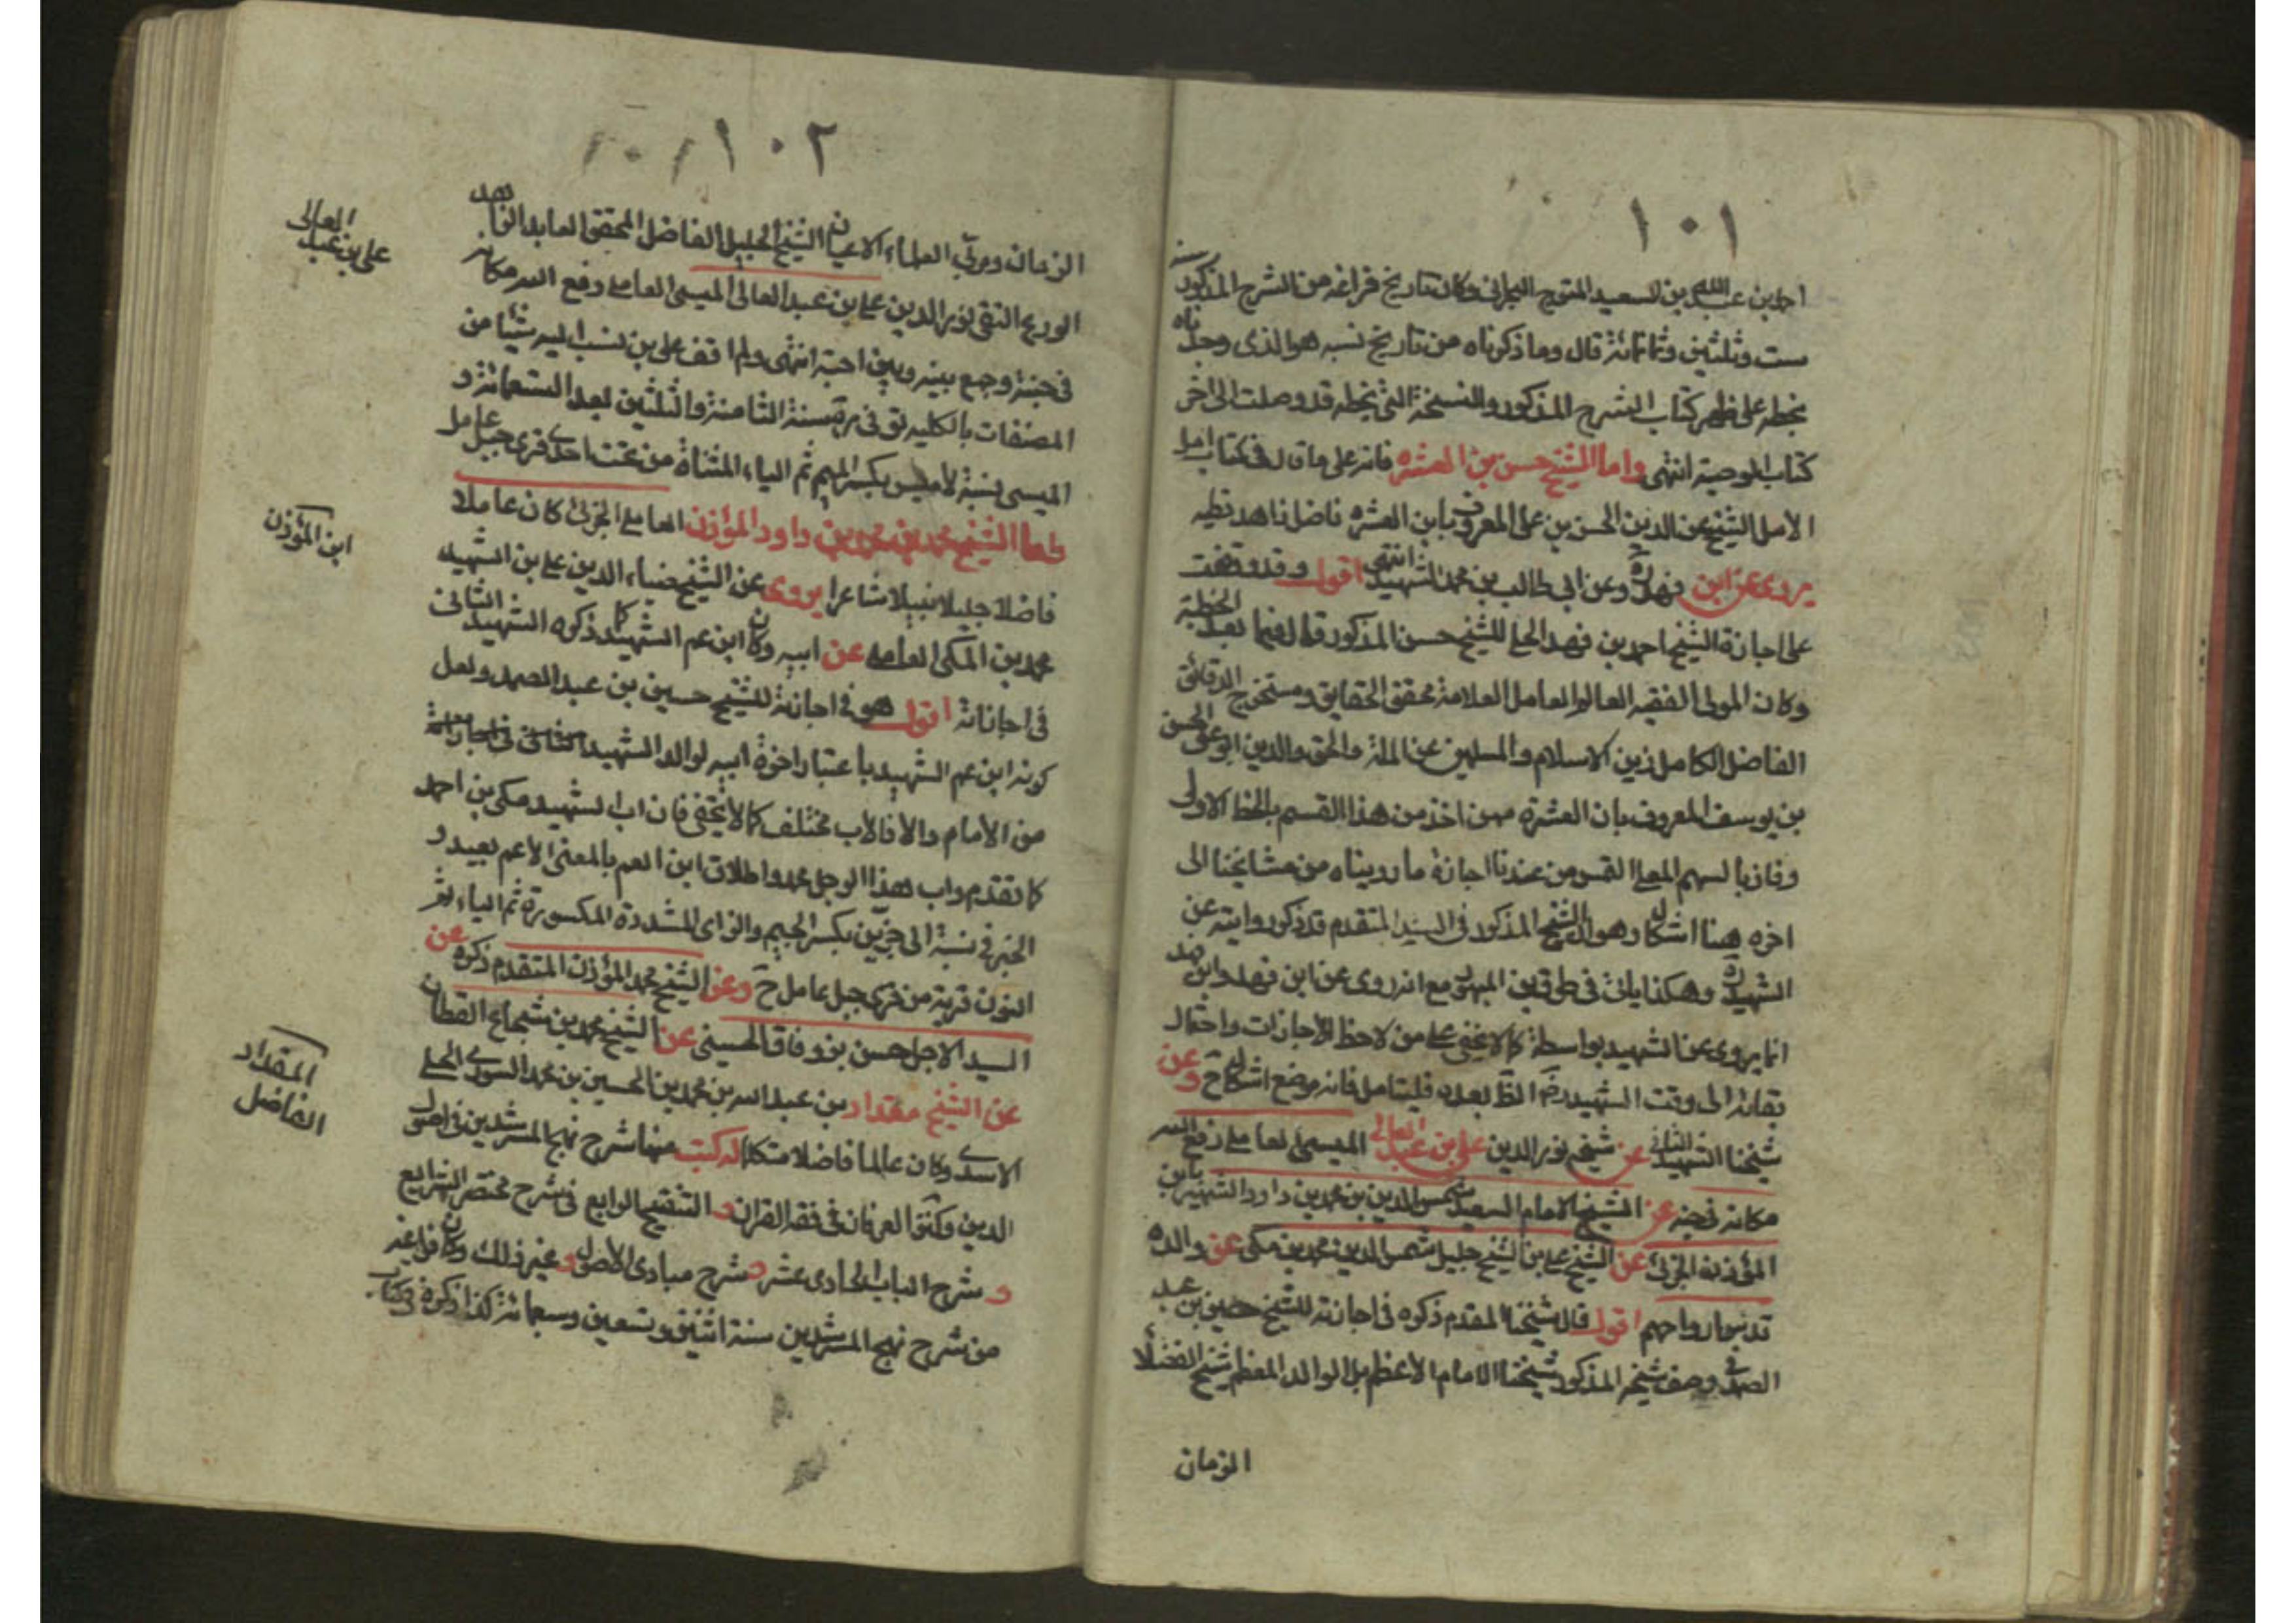 ١٠١
احمد بن عبد الله بن سعيد المتوج البحراني وكان تاريخ فراغه من الشرح المذكور سنة
ست وثلثين وثمانمائة قال وما ذكرناه من تاريخ نسبه هو الذي وجدناه
بخطه على ظهر كتاب الشرح المذكور والنسخة التي بخطه قد وصلت الى اخر
كتاب الوصية انتهى واما الشيخ حسن بن العشره فانه على ما قال في كتاب امل
الأمل الشيخ عز الدين الحسن بن على المعروف بابن العشره فاضل زاهد فقيه
يروى عن ابن فهد ره وعن ابى طالب بن محمد الشهيد انتهى اقول وقد وقفت
على اجازة الشيخ احمد بن فهد الحلي للشيخ حسن المذكور قال فيها بعد الخطبة
وكان المولى الفقيه العالم العامل العلامة محقق الحقايق ومستخرج الدقائق
الفاضل الكامل زين الاسلام والمسلمين عز الملة والحق والدين ابو على الحسن
بن يوسف المعروف بان العشرة ممن اخذ من هذا القسم بالحظ الاولى
وفاز بالسهم المعلى التمس من عندنا اجازة ما رويناه من مشايخنا الى
اخره هنا اشكال وهو ان الشيخ المذكور في السيد المتقدم قد ذكر روايته عن
الشهيد ره وهكذا ياتى في طرقه مع انه روى عن ابن فهد وابن فهد
انما يروى عن الشهيد بواسطة كما لا يخفى على من لاحظ الاجازات واحتمال
بقائه الى وقت الشهيد رة الظ بعده فليتامل فانه موضع اشكال ح وعن
شيخنا الشهيد الثاني عن شيخه نور الدين على بن عبد العالى الميسى العاملي رفع الله
مكانه في جنه عن الشيخ الامام السعيد شمس الدين بن محمد بن داود الشهير بابن
المؤذن الجزيني عن الشيخ على بن الشيخ جليل شمس الدين محمد بن مكى عن والده
قدس ارواحهم اقول قال شيخنا المقدم ذكره في اجازته للشيخ حسين بن عبد
الصمد في وصف شيخه المذكور شيخنا الامام الأعظم بل الوالد المعظم شيخ الفضلاء
الزمان
١٠٢
الزمان ومربى العلماء الاعيان الشيخ الجليل الفاضل المحقق العابد الزاهد
الورع التقى نور الدين على بن عبد العالى الميسى العاملي رفع الله مكانه
في جنته وجمع بينه وبين احبته انتهى ولم اقف على من نسب اليه شيئا من
المصنفات بالكليه توفى ره سنة الثامنة والثلثين بعد التسعمائة و
الميسى نسبة لأميس بكسر الميم ثم الياء المثناة من تحت احدى قرى جبل عامل
واما الشيخ محمد بن محمد بن داود المؤذن العاملي الجزينى كان عاملا
فاضلا جليلا نبيلا شاعرا يروى عن الشيخ ضياء الدين على بن الشهيد
محمد بن المكى العاملي عن ابيه وكان ابن عم الشهيد كما ذكره الشهيد الثانى
فى اجازاته اقول هو في اجازته للشيخ حسين بن عبد الصمد ولعل
كونه ابن عم الشهيد باعتبار اخوة ابيه لوالد الشهيد
من الأمام والا فالأب مختلف كما لا يخفى فان اب الشهيد مكى بن احمد
كما تقدم واب هذا الرجل محمد واطلاق ابن العم بالمعنى الاعم بعيد و
الجزينى نسبة الى جزين بكسر الجيم والزاى المشددة المكسورة ثم الياء ثم
النون قرية من قرى جبل عامل ح وعن الشيخ محمد المؤذن المتقدم ذكره عن
السيد الاجل حسن بن وفاق الحسينى عن الشيخ محمد بن شجاع القطان
عن الشيخ مقداد بن عبد الله بن محمد بن الحسين بن محمد السورى الحلي
الاسدى وكان عالما فاضلا متكلما له كتب منها شرح نهج المسترشدين في اصول
الدين وكنز العرفان في فقه القران و التنقيح الرابع في شرح مختصر الشرايع
و شرح الباب الحادى عشر و شرح مبادى الاصول و غير ذلك وكان فراغه
من شرح نهج المسترشدين سنة اثنين وتسعين وسبعمائة كذا ذكره في كتاب
على بن عبد العالى
ابن المؤذن
المقداد
الفاضل